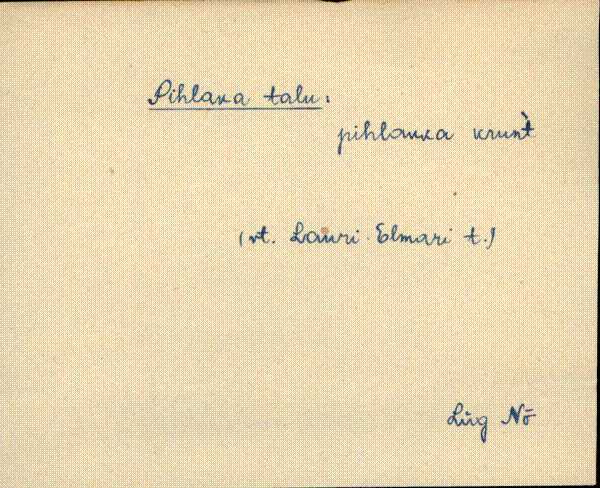 Pihlaka talu:
pihlakka krunt̀
(vt. Lauri-Elmari t.)
Lüg Nõ